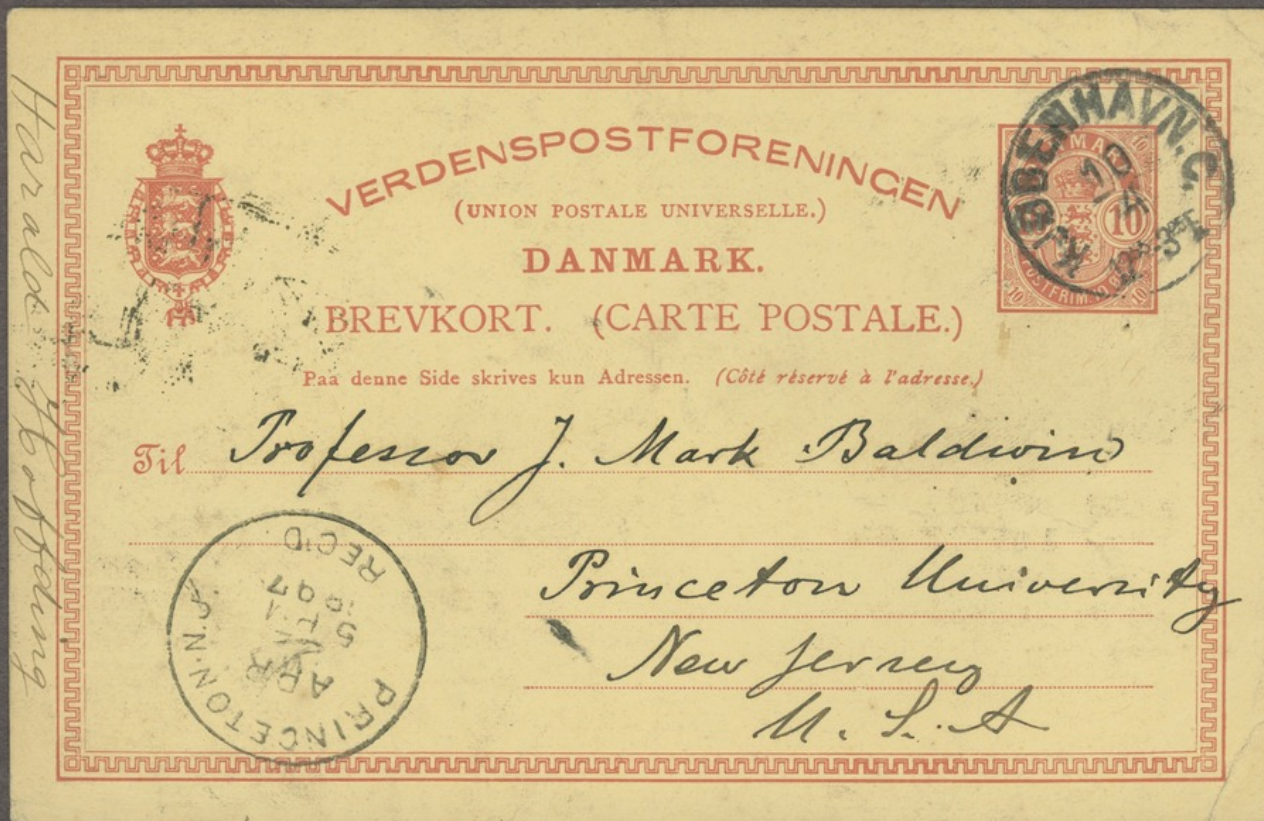 VERDENSPOSTFORENINGEN
(UNION POSTALE UNIVERSELLE.)
DANMARK.
BREVKORT. (CARTE POSTALE.)
Paa denne Side skrives kun Adressen. (Côté réservé à l'adresse.)
KJØBENHAVN.C.
10
10
10
10
Til Professor J. Mark Baldwin
Princeton University
New Jersey
U. S. A
PRINCETON. N.J.
APR
5
97
REC'D
Harald Høffding